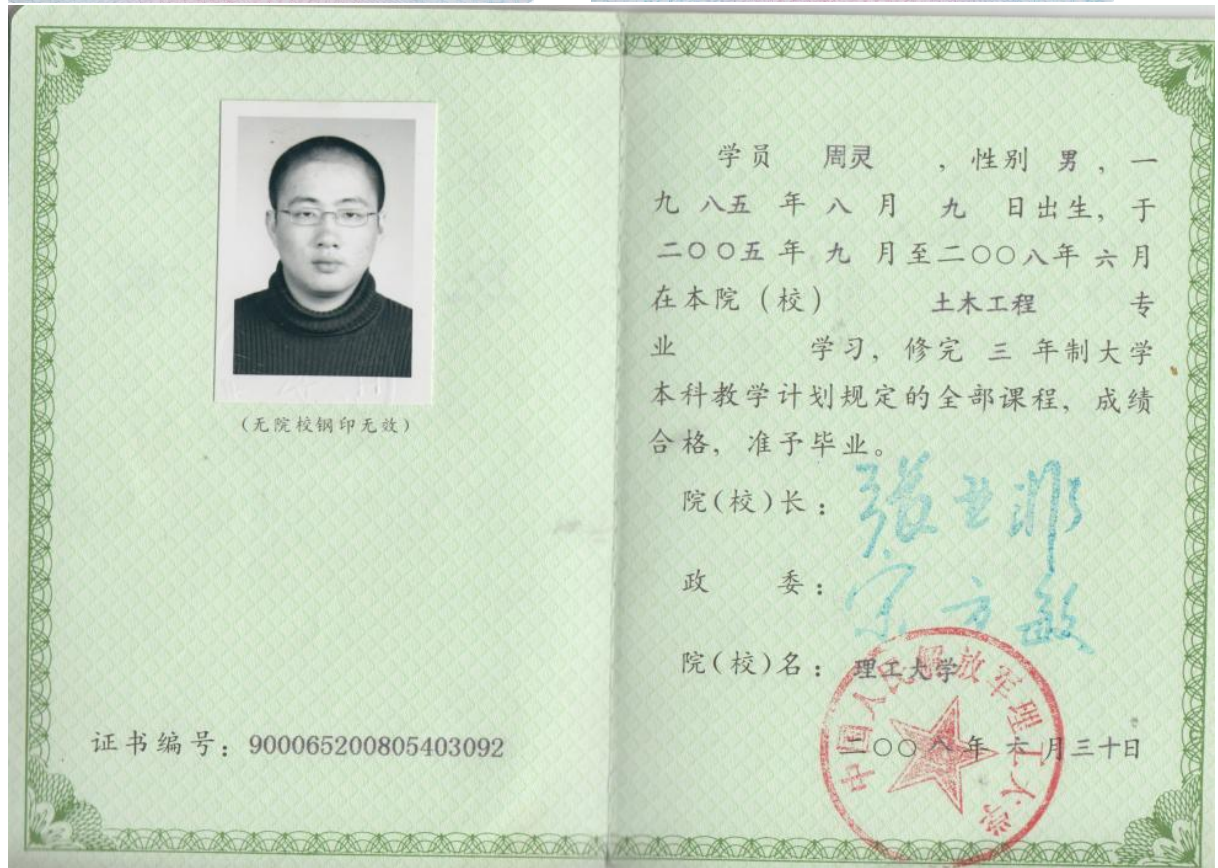 (无院校钢印无效)
证书编号：900065200805403092
学员 周灵 ，性别 男，一
九八五年八月九日出生，于
二〇〇五年九月至二〇〇八年六月
在本院（校） 土木工程 专
业 学习，修完 三 年制大学
本科教学计划规定的全部课程，成绩
合格，准予毕业。
院(校)长：张亚非
政 委：宗方敏
院(校)名：理工大学
中国人民解放军理工大学
二〇〇八年六月三十日